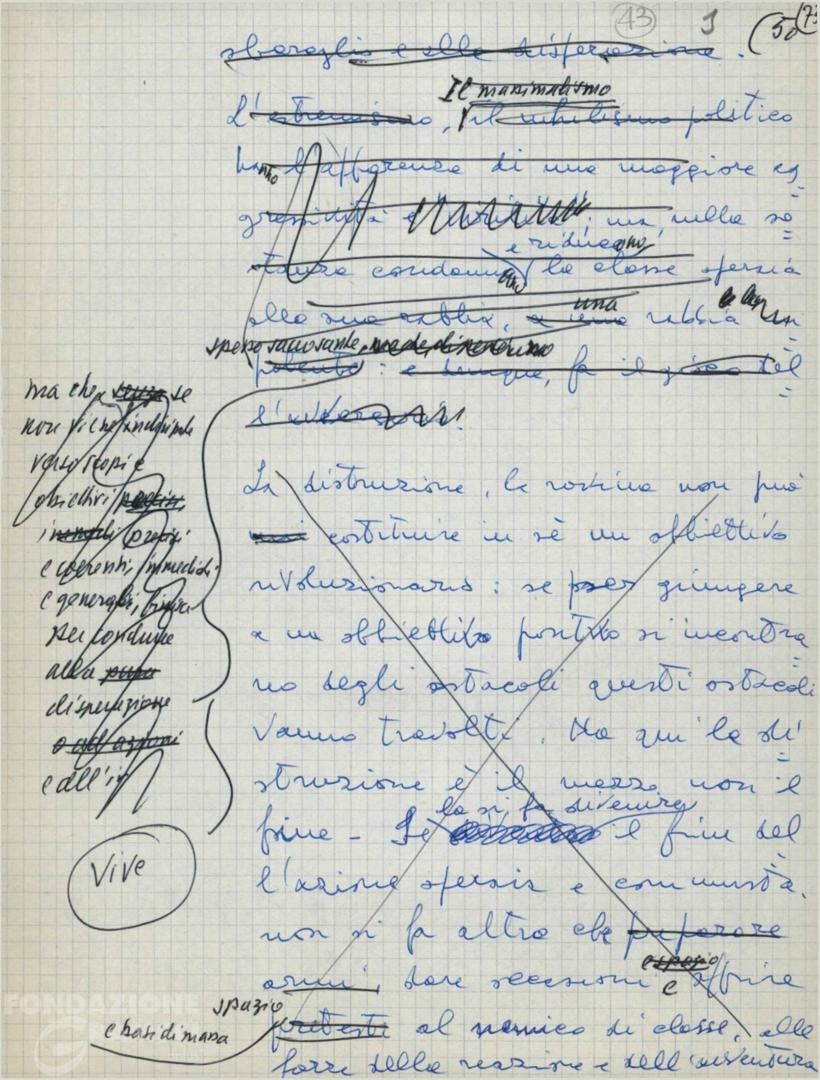 43 J (50 (73
sbaraglio e alla disperazione.
Il massimalismo
L'estremismo, il nihilismo politico
hanno l'apparenza di una maggiore ag=
gressività e ; ma, nella so=
e riducono
stanza condannano la classe operaia
alla sua rabbia, a una una rabbia
spesso sacrosanta,
potente: e dunque, fa il gioco del=
l'avversario.
La distruzione, la rovina non può
mai costituire in sè un obbiettivo
rivoluzionario: se per giungere
a un obbiettivo positivo si incontra=
no degli ostacoli questi ostacoli
vanno travolti. Ma qui la di=
struzione è il mezzo non il
la si fa divenire
fine - Se il fine del=
l'azione operaia e comunista,
non si fa altro che preparare
armi, dare occasioni e offrire
spazio
pretesti al nemico di classe, alle
forze della reazione e dell'avventura
ma che, senza se
non viene incanalata
verso scopi e
obiettivi precisi,
precisi
e coerenti, immediati
e generali, finisce
per condurre
alla pura
disperazione
o ad azioni
e all'i
Vive
e basi di massa
FONDAZIONE
G